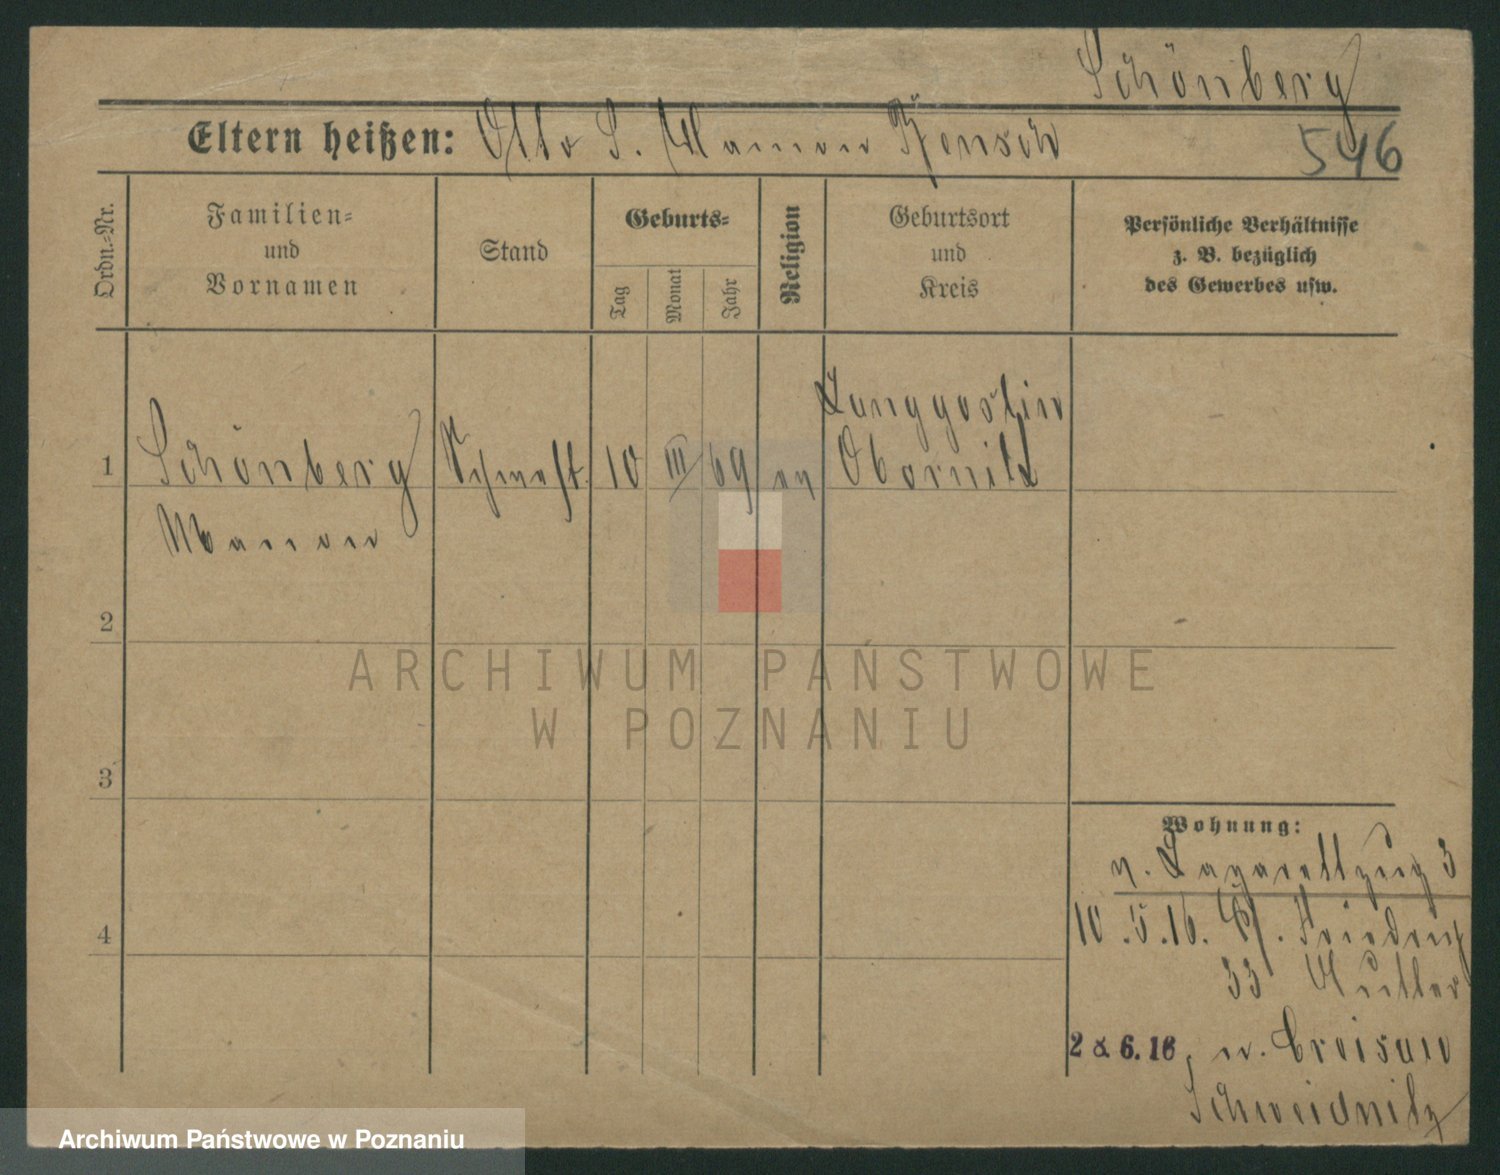 Schönberg
Eltern heißen: Otto S. Manon Rensch
546
Ordn.-Nr.
Familien-
und
Vornamen
Stand
Geburts-
Tag
Monat
Jahr
Religion
Geburtsort
und
Kreis
Persönliche Verhältnisse
z. B. bezüglich
des Gewerbes usw.
1
Schönberg
Manon
Schwest.
10
III
69
ev
Langgoslin
Obornik
2
3
4
Wohnung:
n. Lazarettzug 3
10.5.16.
33 Mutter
28.6.16 n. Creisau
Schweidnitz
ARCHIWUM PAŃSTWOWE
W POZNANIU
Archiwum Państwowe w Poznaniu